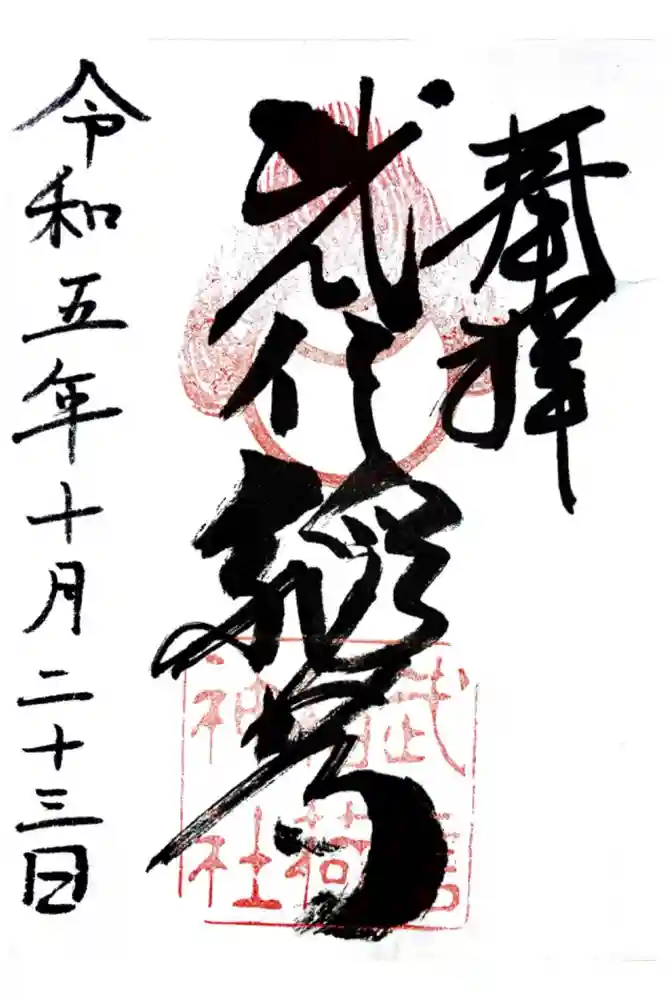 奉拝
武信稲荷
令和五年十月二十三日
武信稲荷神社